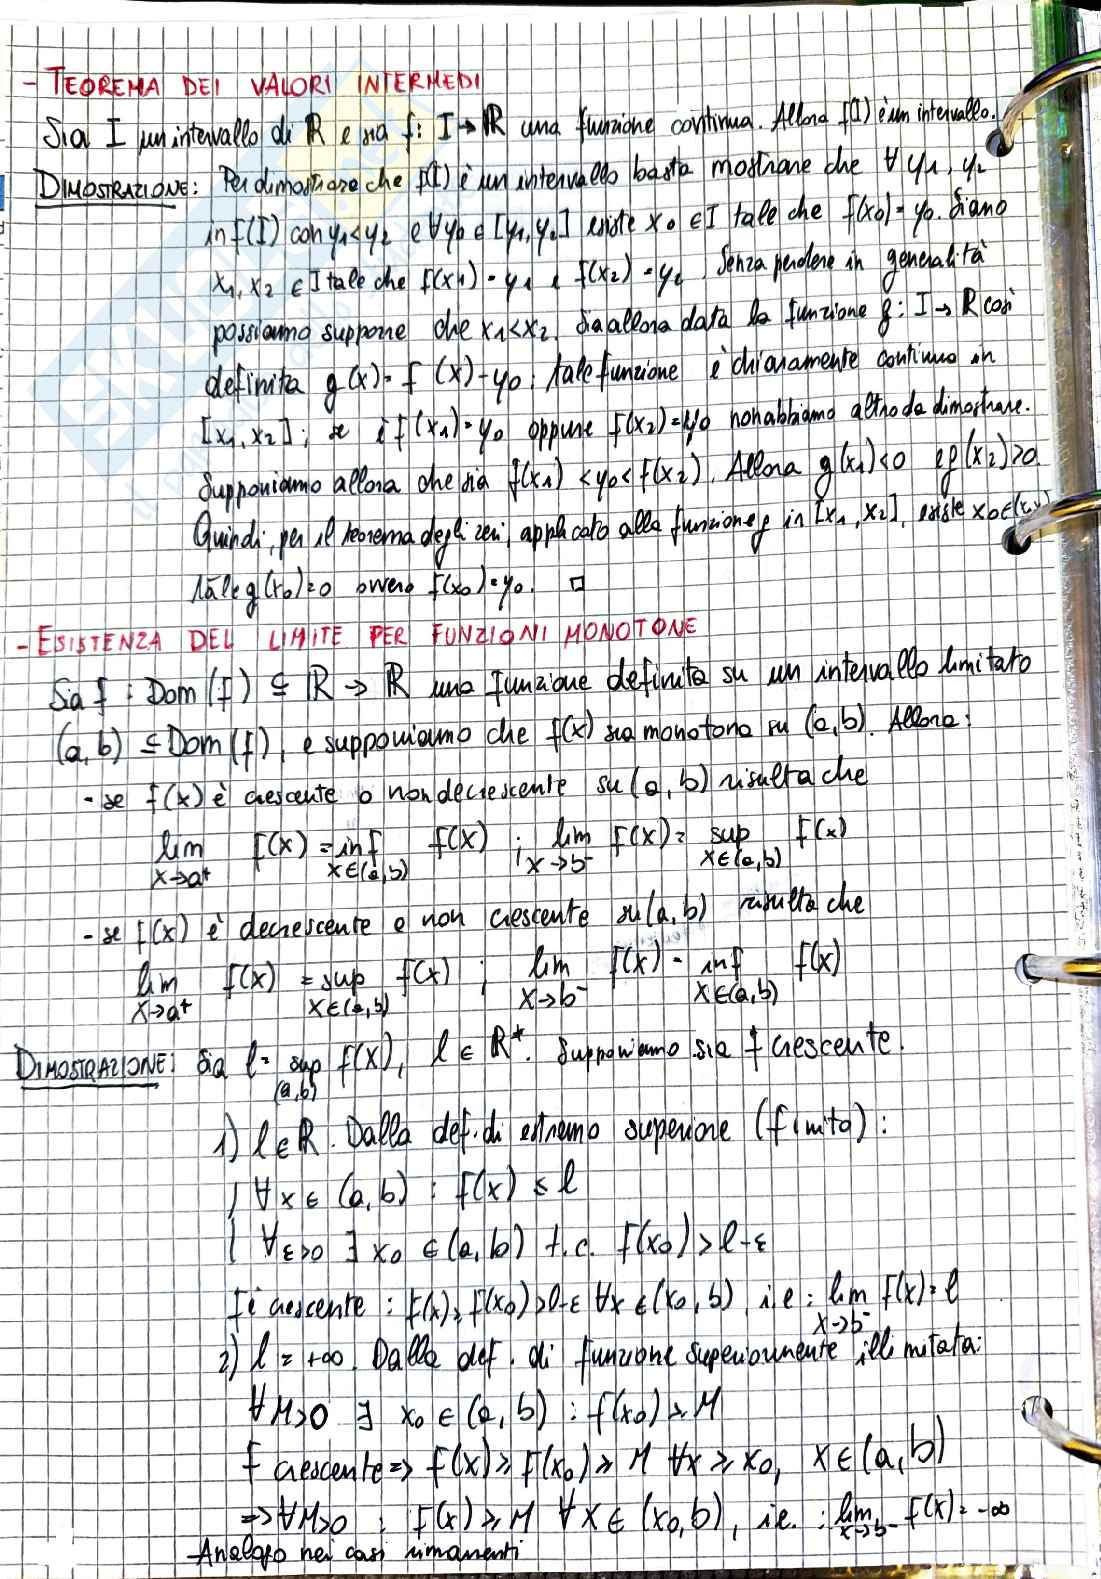 - TEOREMA DEI VALORI INTERMEDI
Sia I un intervallo di ℝ e sia f: I → ℝ una funzione continua. Allora f(I) è un intervallo.
DIMOSTRAZIONE: Per dimostrare che f(I) è un intervallo basta mostrare che ∀ y₁, y₂
in f(I) con y₁<y₂ e ∀y₀ ∈ [y₁,y₂] esiste x₀ ∈ I tale che f(x₀) = y₀. Siano
x₁, x₂ ∈ I tale che f(x₁) = y₁ e f(x₂) = y₂. Senza perdere in generalità
possiamo supporre che x₁<x₂. Sia allora data la funzione g: I → ℝ così
definita g(x) = f(x) - y₀; tale funzione è chiaramente continua in
[x₁, x₂]; se f(x₁) = y₀ oppure f(x₂) = y₀ non abbiamo altro da dimostrare.
Supponiamo allora che sia f(x₁) < y₀ < f(x₂). Allora g(x₁)<0 e g(x₂)>0.
Quindi, per il teorema degli zeri, applicato alla funzione g in [x₁, x₂], esiste x₀∈(x₁,x₂)
tale g(x₀)=0 ovvero f(x₀)=y₀. □
- ESISTENZA DEL LIMITE PER FUNZIONI MONOTONE
Sia f : Dom(f) ⊆ ℝ → ℝ una funzione definita su un intervallo limitato
(a, b) ⊆ Dom(f), e supponiamo che f(x) sia monotona su (a, b). Allora:
- se f(x) è crescente o non decrescente su (a, b) risulta che
lim f(x) = inf f(x) ; lim f(x) = sup f(x)
x→a⁺ x∈(a,b) x→b⁻ x∈(a,b)
- se f(x) è decrescente o non crescente su (a, b) risulta che
lim f(x) = sup f(x) ; lim f(x) = inf f(x)
x→a⁺ x∈(a,b) x→b⁻ x∈(a,b)
DIMOSTRAZIONE: Sia l = sup f(x), l ∈ ℝ*. Supponiamo sia f crescente.
(a,b)
1) l∈ℝ. Dalla def. di estremo superiore (finito):
∀ x ∈ (a, b) : f(x) ≤ l
∀ε>0 ∃ x₀ ∈ (a, b) t.c. f(x₀) > l-ε
f è crescente : f(x) ≥ f(x₀) > l-ε ∀x ∈ (x₀, b), i.e : lim f(x) = l
x→b⁻
2) l = +∞. Dalla def. di funzione superiormente illimitata:
∀ M>0 ∃ x₀ ∈ (a, b) : f(x₀) ≥ M
f crescente ⇒ f(x) ≥ f(x₀) ≥ M ∀x ≥ x₀, x ∈ (a, b)
⇒ ∀M>0 : f(x) ≥ M ∀x ∈ (x₀, b), i.e. : lim f(x) = -∞
x→b⁻
- Analogo nei casi rimanenti